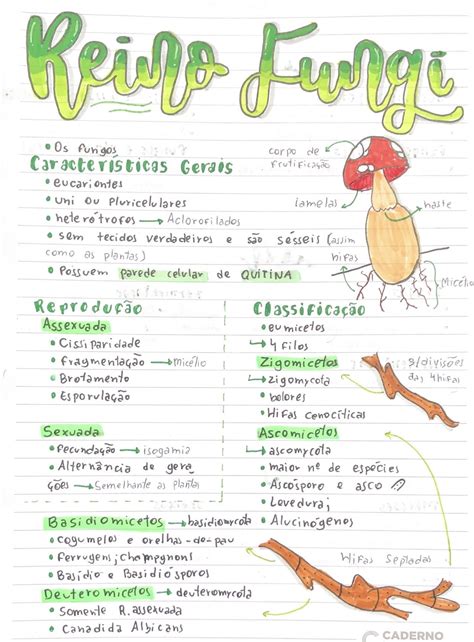 Reino Fungi
• Os fungos
Características Gerais
• eucariontes
• uni ou pluricelulares
• heterótrofos → Aclorofilados
• sem tecidos verdadeiros e são sésseis (assim
como as plantas)
• Possuem parede celular de QUITINA
corpo de
frutificação
lamelas
haste
hifas
Micélio
Reprodução
Assexuada
• Cissiparidade
• fragmentação → micélio
• Brotamento
• Esporulação
Sexuada
• Fecundação → isogamia
• Alternância de gera
ções → Semelhante as plantas
Classificação
• eumicetos
↳ 4 filos
Zigomicetos
↳ zigomycota
• bolores
• Hifas cenocíticas
s/divisões
das hifas
Ascomicetos
↳ ascomycota
• maior nº de espécies
• Ascósporo e asco
• Levedura;
• Alucinógenos
Basidiomicetos → basidiomycota
• cogumelos e orelhas-de-pau
• Ferrugens; champgnons
• Basídio e Basidiósporos
Deuteromicetos → deuteromycota
• Somente R. assexuada
• Candida Albicans
Hifas Septadas
CADERNO